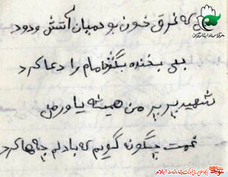 که غرق خون بود میان آتش و دود
بی بخنده بگفتا امام را دعا کرد
شهید پرپر من همیشه یاور من
غمت چگونه گویم که بادلم چها کرد